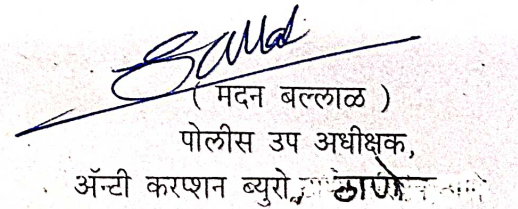 ( मदन बल्लाळ )
पोलीस उप अधीक्षक,
ॲन्टी करप्शन ब्युरो, ठाणे